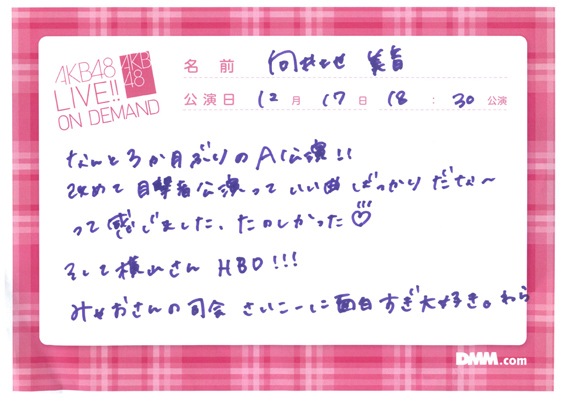 AKB48
LIVE!!
ON DEMAND
AKB
48
名前 向井地 美音
公演日 12月17日 18:30公演
なんと3か月ぶりのA公演!!
改めて目撃者公演っていい曲ばっかりだな〜
って感じました、たのしかった♡
そして横山さん HBD!!!
みゃおさんの司会 さいこーに面白すぎ大好き。わら
DMM.com